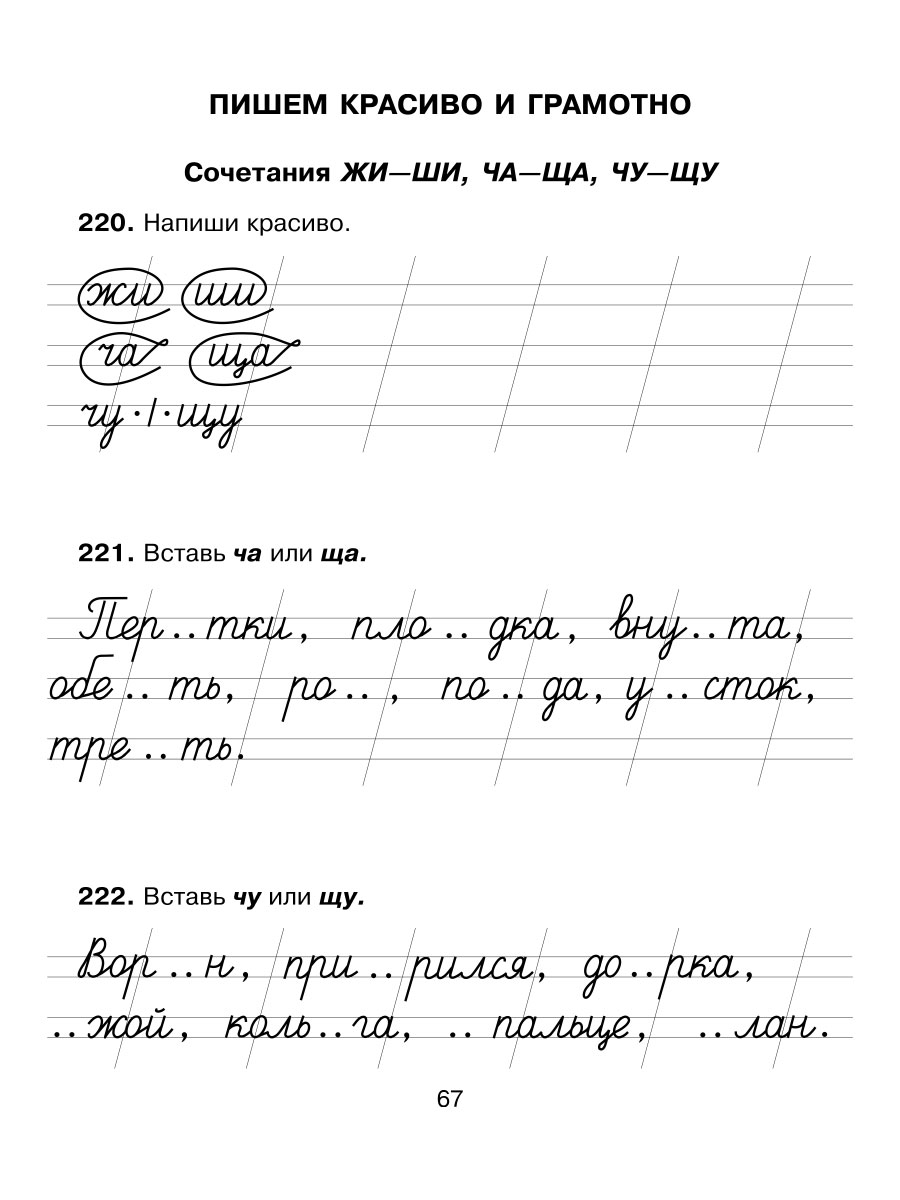 ПИШЕМ КРАСИВО И ГРАМОТНО
Сочетания ЖИ—ШИ, ЧА—ЩА, ЧУ—ЩУ
220. Напиши красиво.
жи ши
ча ща
чу · / · щу
221. Вставь ча или ща.
Пер .. тки, пло .. дка, вну .. та,
обе .. ть, ро .. , по .. да, у .. сток,
тре .. ть.
222. Вставь чу или щу.
Вор .. н, при .. рился, до .. рка,
.. жой, коль .. га, .. пальце, .. лан.
67